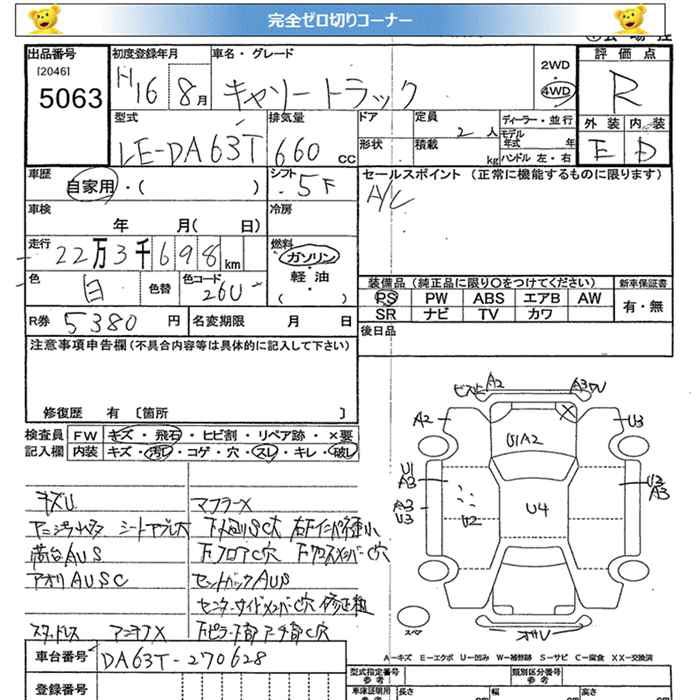 完全ゼロ切りコーナー
出品番号 初度登録年月 車名・グレード 2WD・4WD 評価点
[2046]
5063 H16 8月 キャリートラック R
型式 排気量 ドア 定員 ディーラー・並行 外装 内装
LE-DA63T 660cc 2人 モデル年式 年 E D
形状 積載 kg ハンドル 左・右
車歴 シフト セールスポイント (正常に機能するものに限ります)
自家用・( ) 5F A/C
車検 冷房
年 月( 日)
走行 燃料
22万3千698km ガソリン・軽油・( )
色 白 色替 色コード 26U 装備品(純正品に限り○をつけてください) 新車保証書
PS PW ABS エアB AW 有・無
SR ナビ TV カワ
R券 5380円 名変期限 月 日 後日品
注意事項申告欄(不具合内容等は具体的に記入して下さい)
修復歴 有 〔箇所 〕
検査員 FW キズ・飛石・ヒビ割・リペア跡・×要
記入欄 内装 キズ・汚レ・コゲ・穴・スレ・キレ・破レ
A2 A3
A2 U3
U1A2
U1 A3 U3 A3
A3 U3 U2 U4
キズU マフラーX
シートヤブレ大
荷台AUS 下フロアC穴
アオリAUSC セットバックAUS
スタッドレス
スペア
車台番号 DA63T-270628
A-キズ E-エクボ U-凹み W-補修跡 S-サビ C-腐食 XX-交換済
登録番号 型式指定番号 参考 類別区分番号 参考
車庫証明用 参考 長さ cm 幅 cm 高さ cm